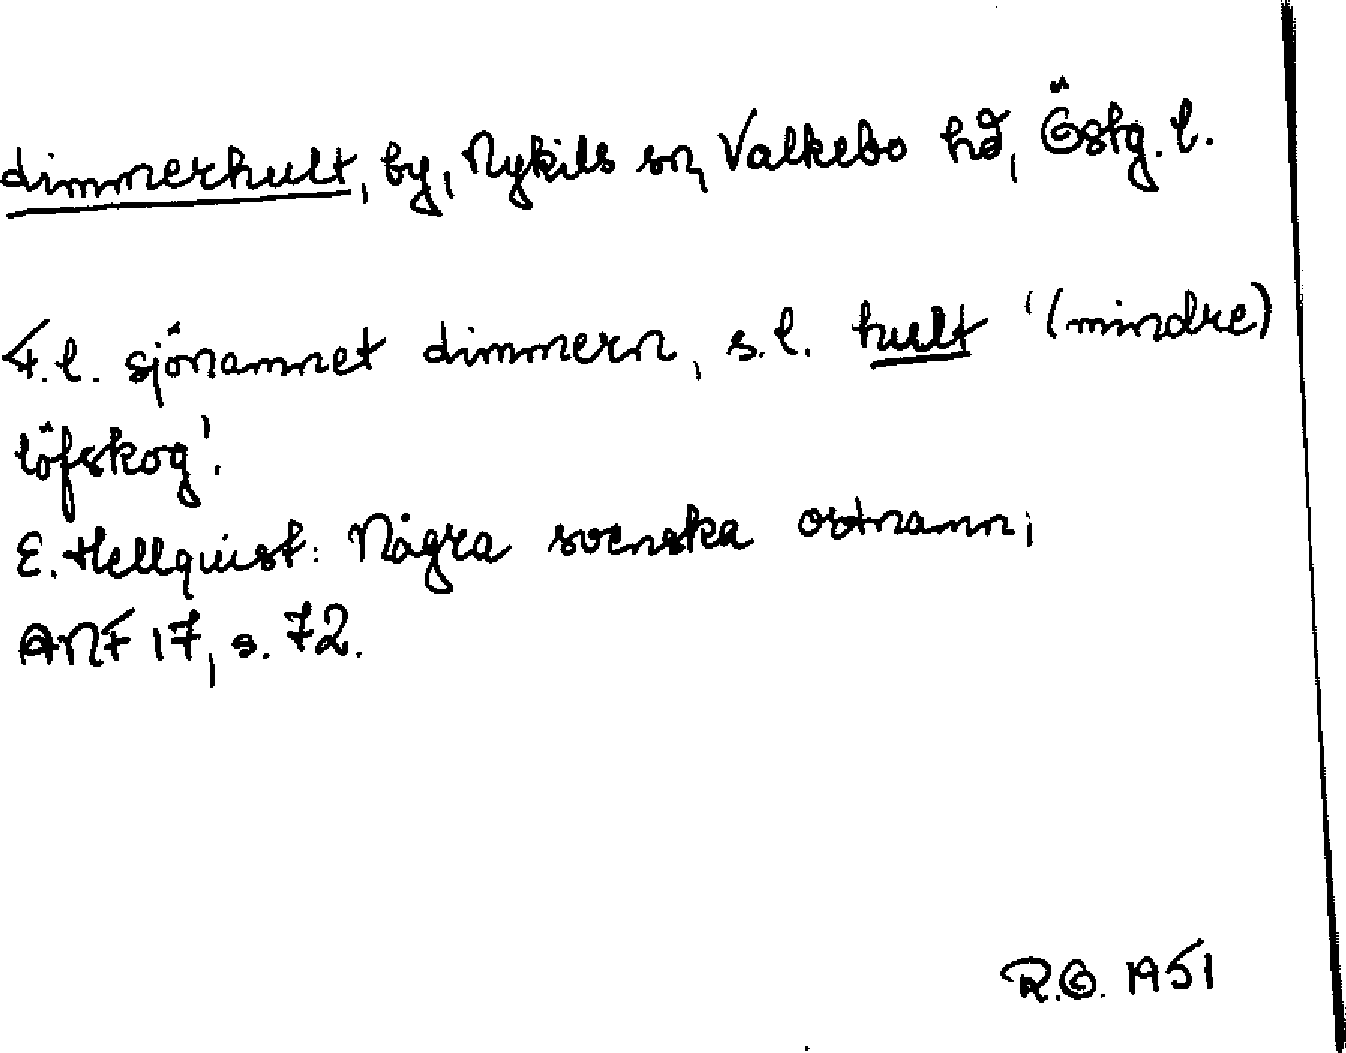 dimmerhult, by, Nykils sn, Valkebo hd, Östg. l.
F.l. sjönamnet dimmern, s.l. hult '(mindre)
löfskog'.
E. Hellquist: Några svenska ortnamn;
ANF 17, s. 72.
R.O. 1951